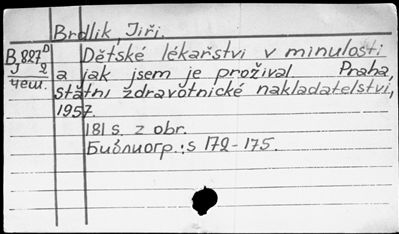 Brdlik, Jiři.
B 827 D Dětské lékařstvi v minulosti
J 2 a jak jsem je prožival Praha,
чеш. státni zdravotnické nakladatelstvi,
1957.
181 s. z obr.
Библиогр.: s 172-175.